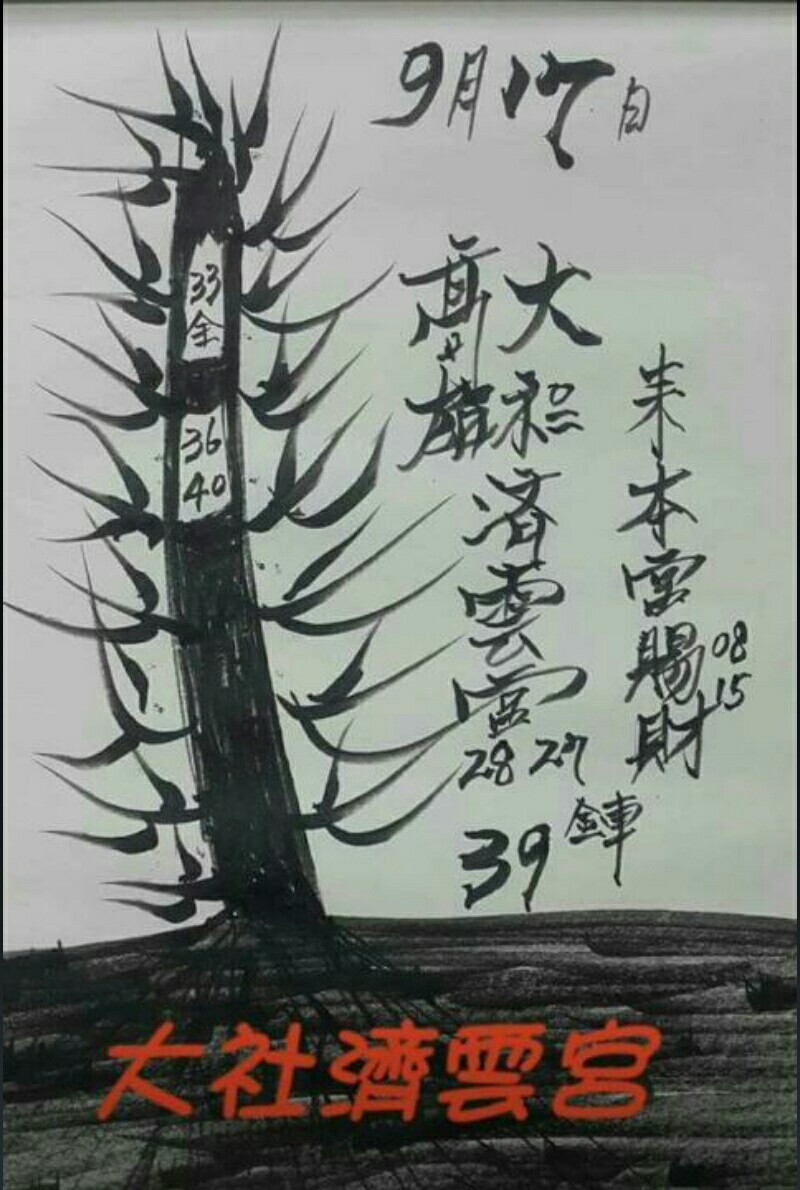 9月17日
33
全
36
40
高雄
大社
済雲宮
28 27
39
鉾
来本宮賜財
08
15
大社濟雲宮